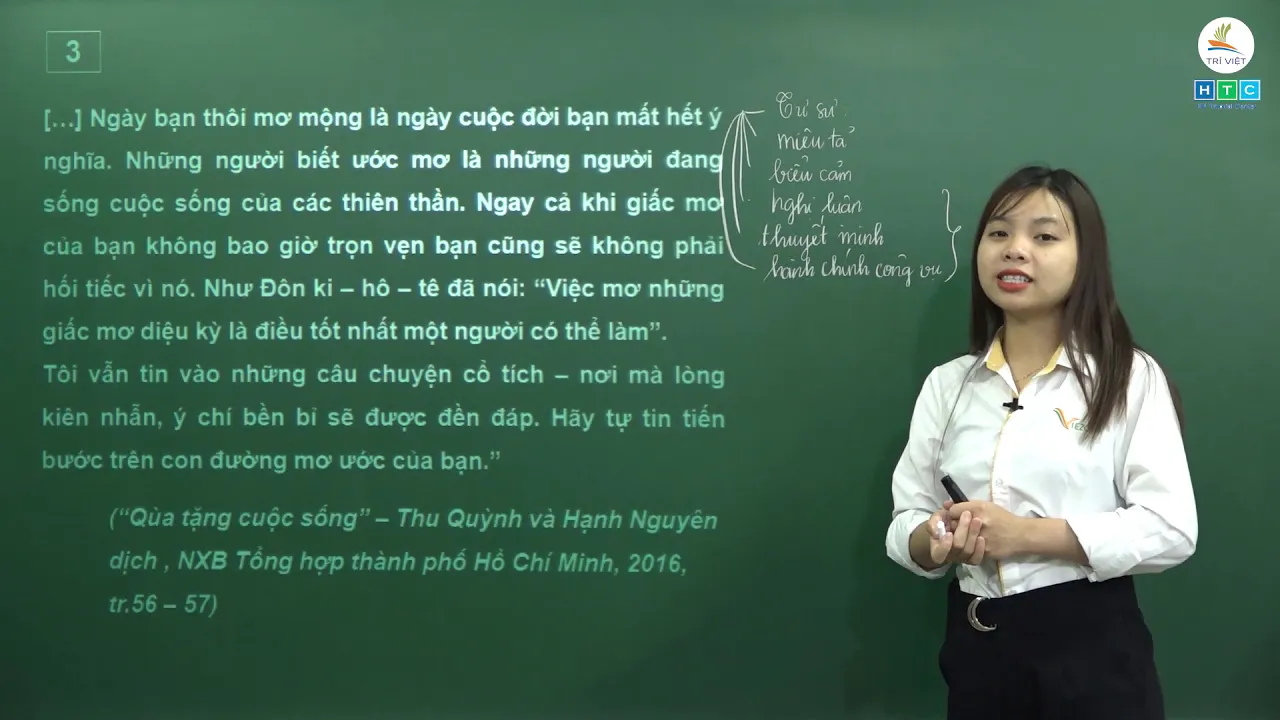 3
[...] Ngày bạn thôi mơ mộng là ngày cuộc đời bạn mất hết ý
nghĩa. Những người biết ước mơ là những người đang
sống cuộc sống của các thiên thần. Ngay cả khi giấc mơ
của bạn không bao giờ trọn vẹn bạn cũng sẽ không phải
hối tiếc vì nó. Như Đôn ki – hô – tê đã nói: “Việc mơ những
giấc mơ diệu kỳ là điều tốt nhất một người có thể làm”.
Tôi vẫn tin vào những câu chuyện cổ tích – nơi mà lòng
kiên nhẫn, ý chí bền bỉ sẽ được đền đáp. Hãy tự tin tiến
bước trên con đường mơ ước của bạn.”
(“Qùa tặng cuộc sống” – Thu Quỳnh và Hạnh Nguyên
dịch , NXB Tổng hợp thành phố Hồ Chí Minh, 2016,
tr.56 – 57)
Tự sự
miêu tả
biểu cảm
nghị luận
thuyết minh
hành chính công vụ
TRÍ VIỆT
HTC